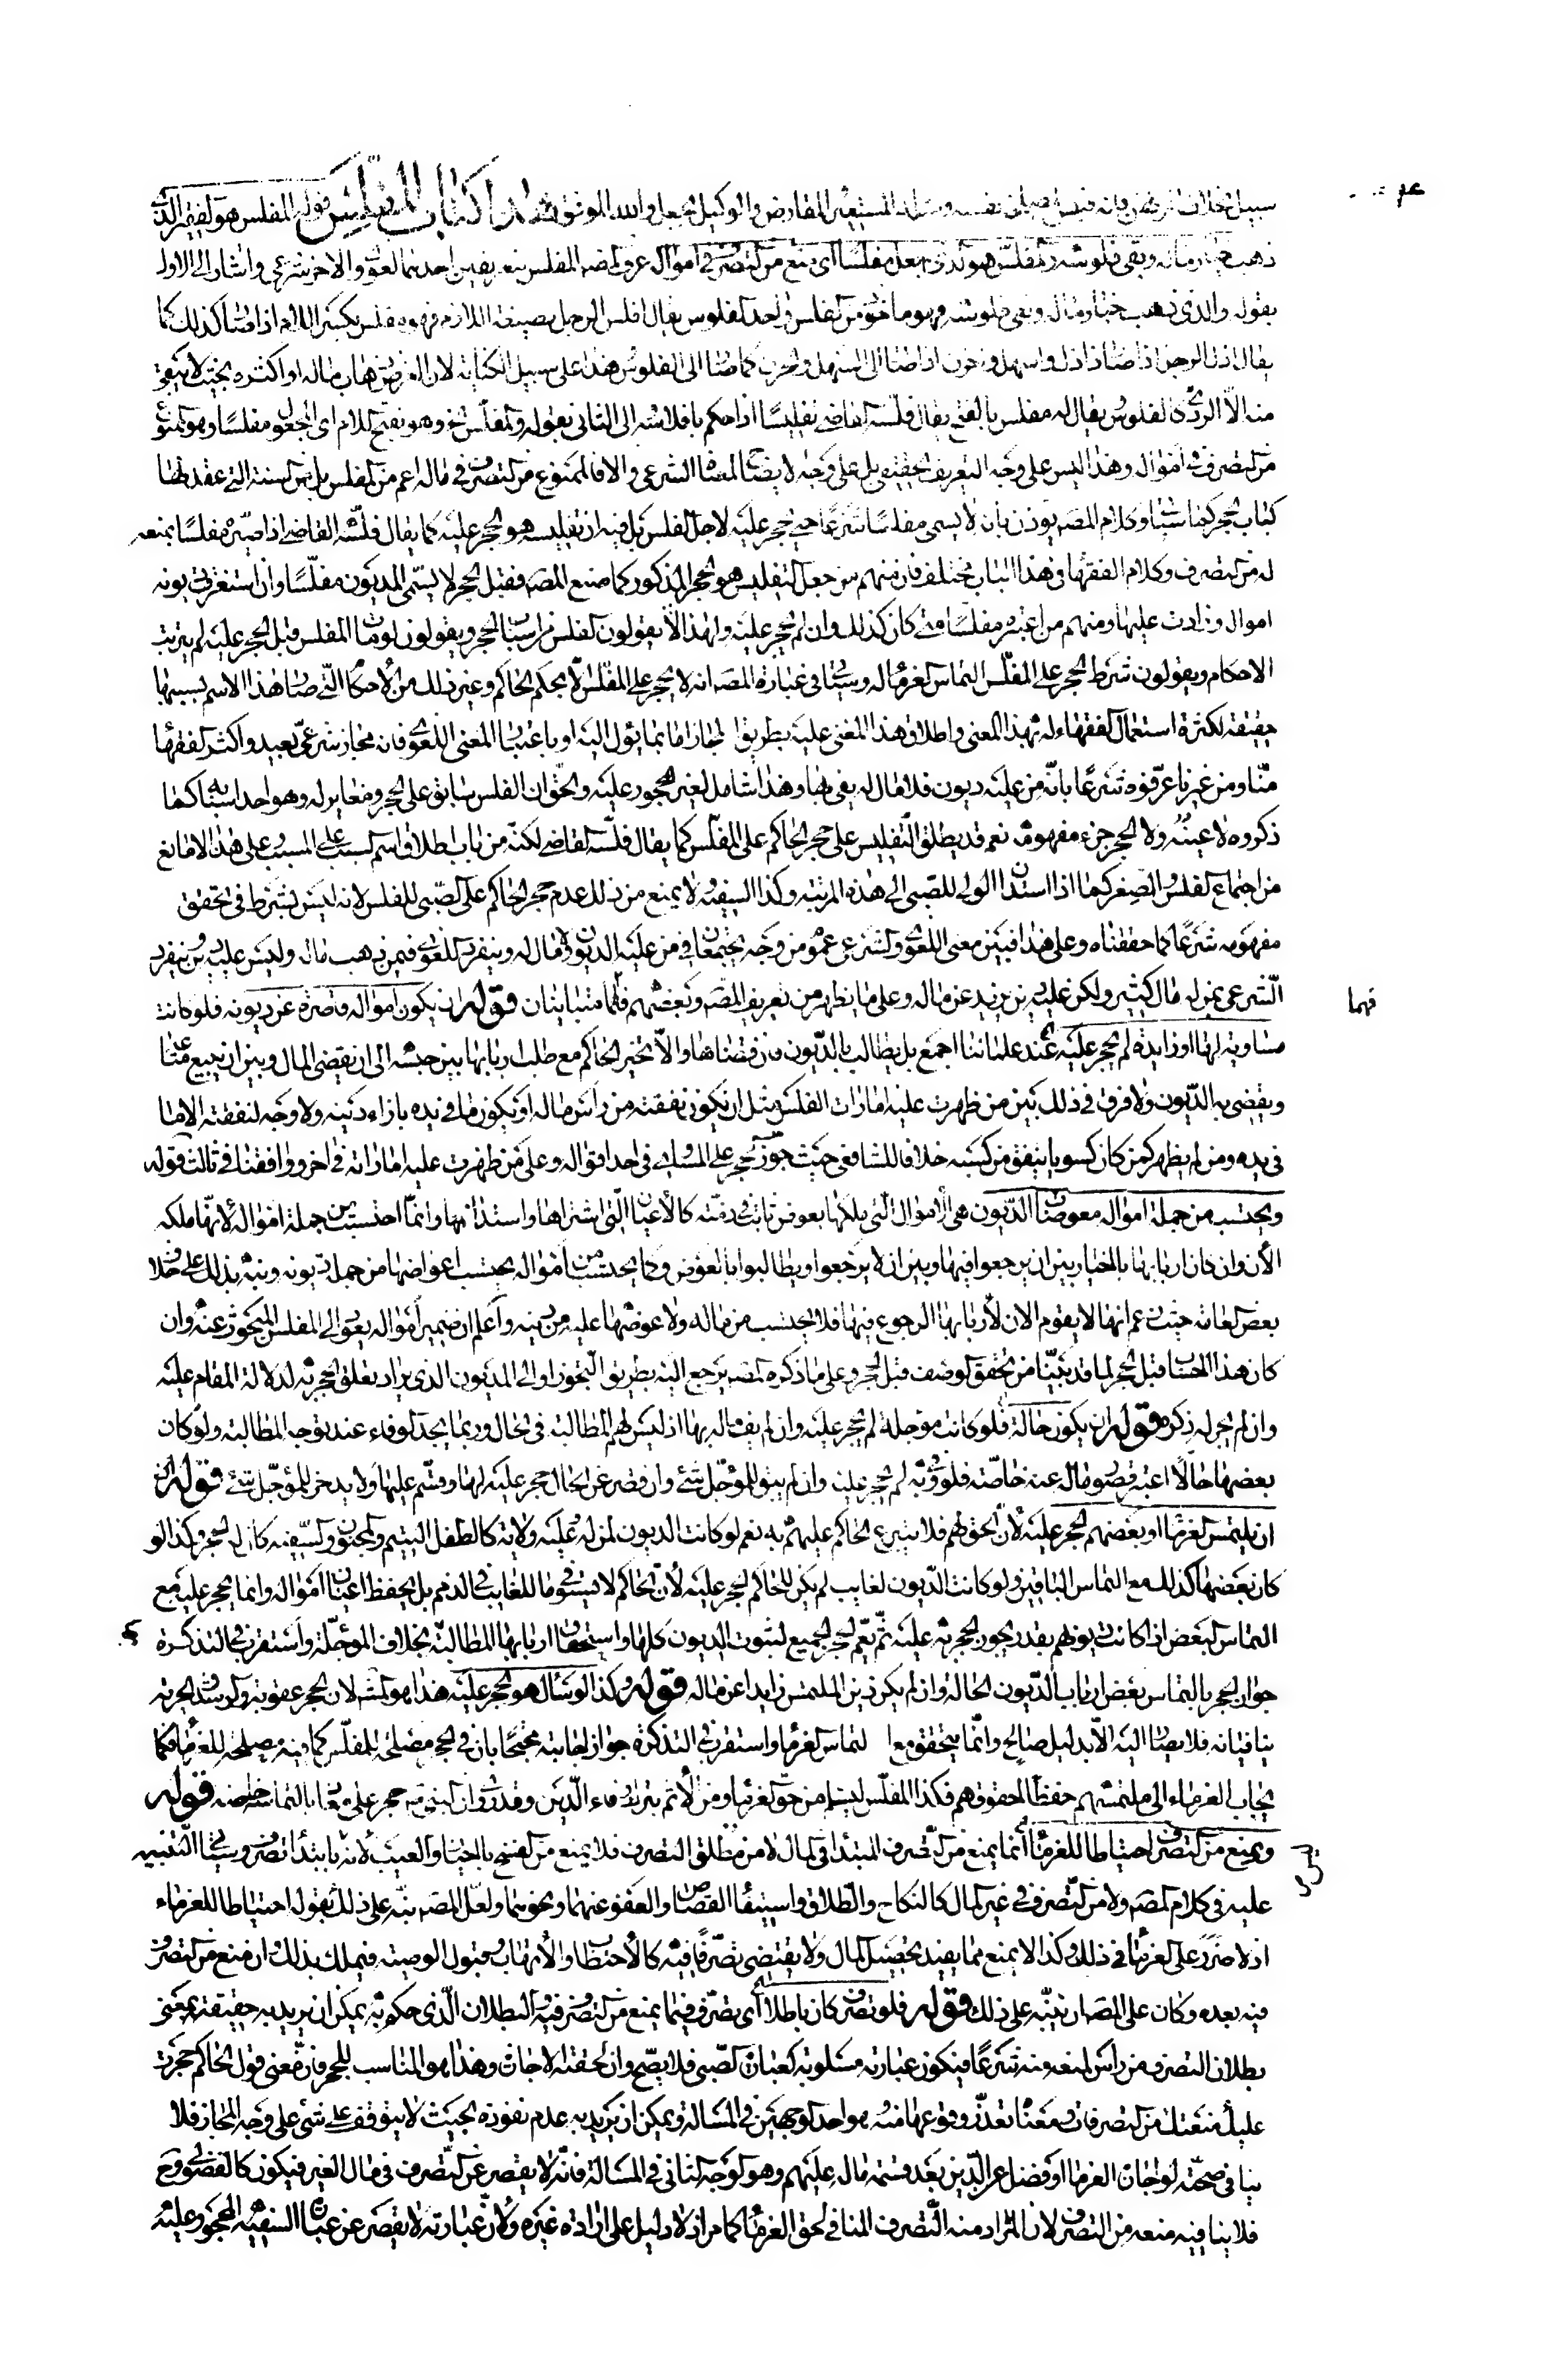 سبيل بخلاف المرتهن فانه قبض لمصلحة نفسه ومثله المستعير المقارض والوكيل بجعل والله الموفق كتاب المفلس قوله المفلس هو الفقير الذى
ذهب خيار ماله وبقى فلوسه والمفلس هو الذى جعل مفلسا اى منع من التصرف فى امواله عرف المصـ المفلس بتعريفين احدهما لغوى والاخر شرعى واشار الى الاول
بقوله والذى ذهب خيار ماله وبقى فلوسه وهو ماخوذ من الفلس واحد الفلوس يقال افلس الرجل بصيغة اللازم فهو مفلس بكسر اللام اذا صار كذلك كما
يقال اذل الرجل اذا صار ذا ذل واسهل واحزن اذا صار الى السهل والحزن كما صار الى الفلوس هذا على سبيل الكناية لان الغرض ذهاب ماله او اكثره بحيث لا يبقى
منه الا الردى كالفلوس يقال له مفلس بالفتح يقال فلسه القاضى تفليسا اذا حكم بافلاسه الى الثانى بقوله والمفلس الخ وهو بفتح اللام اى المجعول مفلسا وهو الممنوع
من التصرف فى امواله وهذا ليس على وجه التعريف الحقيقى بل على وجه لايضاح المعنى الشرعى والا فالممنوع من التصرف فى ماله اعم من المفلس بل من الستة التى عقد لها
كتاب الحجر كما سيئا وكلام المصـ يوذن بان لا يسمى مفلسا شرعا حتى يحجر عليه لاجل الفلس بل فيه ان تفليسه هو الحجر عليه كما يقال فلسه القاضى اذا صيره مفلسا بمنعه
له من التصرف وكلام الفقها فى هذا الباب مختلف فان منهم من جعل التفليس هو الحجر المذكور كما صنع المصـ فقبل الحجر لا يسمى المديون مفلسا وان استغرقت ديونه
امواله وزادت عليها ومنهم من اعتبره مفلسا متى كان كذلك وان لم يحجر عليه ولهذا يقولون الفلس من اسباب الحجر ويقولون لو مات المفلس قبل الحجر عليه لم يترتب
الاحكام ويقولون شرط الحجر على المفلس التماس الغرماله وسيئا فى عبارة المصـ انه لا يحجر على المفلس الا بحكم الحاكم وغير ذلك من الاحكام التى صار هذا الاسم بسببها
حقيقة لكثرة استعمال الفقهاء له بهذا المعنى واطلاق هذا المعنى عليه بطريق المجاز اما بما يؤل اليه او باعتبار المعنى اللغوى فانه مجاز شرعى بعيد واكثر الفقها
منا ومن غيرنا عرفوه شرعا بانه من عليه ديون فلا مال له يفى بها وهذا شامل لغير المحجور عليه والحق ان الفلس سابق على الحجر ومغاير له وهو احد اسبابه كما
ذكروه لا عينه ولا الحجر جزء مفهومه نعم قد يطلق التفليس على حجر الحاكم على المفلس كما يقال فلسه القاضى لكنه من باب اطلاق اسم السبب على المسبب على هذا لا مانع
من اجتماع الفلس والصغر كما اذا استدان الولى للصبى الى هذه المرتبة وكذا السفيه لا يمنع من ذلك عدم حجر الحاكم على الصبى للفلس لانه ليس بشرط فى تحقق
مفهومه شرعا كما حققناه وعلى هذا فبين معنى اللغوى والشرعى عموم من وجه يجتمعان فى من عليه الديون ولا مال له وينفرد اللغوى فيمن ذهب ماله وليس عليه دين وينفرد
الشرعى بمن له مال كثير ولكن عليه دين يزيد عن ماله وعلى ما يظهر من تعريف المصـ وبعضهم فهما متباينان قوله ان يكون امواله قاصرة عن ديونه فلو كانت
فهما
مساوية لها او زايدة لم يحجر عليه عند علمائنا اجمع بل يطالب بالديون فان قضاها والا تخير الحاكم مع طلب اربابها بين حبسه الى ان يقضى المال وبين ان يبيع متاعه
ويقضى به الديون ولا فرق فى ذلك بين من ظهرت عليه امارات الفلس مثل ان يكون نفقته من راس ماله او يكون ما فى يده بازاء دينه ولا وجه لنفقته الا ما
فى يده ومن لم يظهر كمن كان كسوبا ينفق من كسبه خلافا للشافعى حيث جوز الحجر على المساوى فى احد اقواله وعلى من ظهرت عليه اماراته فى اخر ووافقنا فى ثالث قوله
ويحتسب من جملة امواله معوضات الديون هى الاموال التى ملكها بعوض ثابت فى ذمته كالاعيان التى اشتراها واستدانها وانما احتسبت من جملة امواله لانها ملكه
الان وان كان اربابها بالخيار بين ان يرجعوا فيها وبين ان لا يرجعوا ويطالبوا بالعوض وكما يحتسب من امواله يحتسب اعواضها من جملة ديونه ونبه بذلك على خلاف
بعض العامة حيث زعم انها لا يقوم الان لاربابها الرجوع فيها فلا يحتسب من ماله ولا عوضها عليه من دينه واعلم ان ضمير امواله يعود الى المفلس المبحوث عنه وان
كان هذا الحساب قبل الحجر لما قد بينا من تحقق الوصف قبل الحجر وعلى ما ذكره المصـ يرجع اليه بطريق التجوز او الى المديون الذى يراد تعلق الحجر به لدلالة المقام عليه
وان لم يجر له ذكر قوله ان يكون حالة فلو كانت مؤجلة لم يحجر عليه وان لم يف ماله بها اذ ليس لهم المطالبة فى الحال وربما يجد الوفاء عند توجه المطالبة ولو كان
بعضها حالا اعتبر قصور ماله عنه خاصة فلو وفى به لم يحجر عليه وان لم يبق للمؤجل شئ وان قصر عن الحال حجر عليه لها وقسم عليها ولا يدخر للمؤجل شئ قوله
ان يلتمس الغرما او بعضهم الحجر عليه لان الحق لهم فلا يتبرع الحاكم عليهم به نعم لو كانت الديون لمن له عليه ولاية كالطفل اليتيم والمجنون والسفيه كان له الحجر وكذا لو
كان بعضها كذلك مع التماس الباقين ولو كانت الديون لغايب لم يكن للحاكم الحجر عليه لان الحاكم لا يستوفى ما للغايب فى الذمم بل يحفظ اعيان امواله وانما يحجر عليه مع
التماس البعض اذا كانت ديونهم بقدر يجوز الحجر به عليه ثم يعم الحجر الجميع لثبوت الديون كلها واستحقاق اربابها المطالبة بخلاف المؤجلة واستقرب فى التذكرة
جواز الحجر بالتماس بعض ارباب الديون الحالة وان لم يكن دين الملتمس زايدا عن ماله قوله وكذا لو سال هو الحجر عليه هذا هو المشهـ لان الحجر عقوبة والرشد والحرية
ينافيانه فلا يصار اليه الا بدليل صالح وانما يتحقق مع التماس الغرما واستقرب فى التذكرة جواز اجابته محتجا بان فى الحجر مصلحة للمفلس كما فيه مصلحة للغرما فكما
يجاب الغرماء الى ملتمسهم حفظا لحقوقهم فكذا المفلس ليسلم من حق الغرما ومن الاثم بترك وفاء الدين وقد روى ان النبى ص حجر على معاذ بالتماسه خاصة قوله
ويمنع من التصرف احتياطا للغرما انما يمنع من التصرف المبتدا فى المال لا من مطلق التصرف فلا يمنع من الفسخ بالخيار والعيب لانه ليس بابتداء تصرف وسيئا التنبيه
عليه فى كلام المصـ ولا من التصرف فى غير المال كالنكاح والطلاق واستيفاء القصاص والعفو عنهما ونحوهما ولعل المصـ نبه على ذلك بقوله احتياطا للغرماء
اذ لا ضرر على الغرما فى ذلك وكذا لا يمنع مما يفيد تحصيل المال ولا يقتضى تصرفا فيه كالاحتطاب والاتهاب وقبول الوصية فيملك بذلك وان منع من التصرف
فيه بعده وكان على المصـ ان ينبه على ذلك قوله فلو تصرف كان باطلا اى تصرف فيما يمنع من التصرف فيه والبطلان الذى حكم به يمكن ان يريد به حقيقته بمعنى
بطلان التصرف من راس لمنعه منه شرعا فيكون عبارته مسلوبة كعبارة الصبى فلا يصح وان لحقته الاجازة وهذا هو المناسب للحجر فان معنى قول الحاكم حجرت
عليك منعتك من التصرفات ومعناه تعذر وقوعها منه هو احد الوجهين فى المسالة ويمكن ان يريد به عدم نفوذه بحيث لا يتوقف على شئ على وجه المجاز فلا
ينافى صحته لو اجاز الغرما او فضل عن الدين بعد قسمة ماله عليهم وهو الوجه الثانى فى المسالة فانه لا يقصر عن التصرف فى مال الغير فيكون كالفضولى وح
فلا ينافيه منعه من التصرف لان المراد منه التصرف المنافى لحق الغرما كما مر اذ لا دليل على ارادة غيره ولان عبارته لا يقصر عن عبارة السفيه المحجور عليه